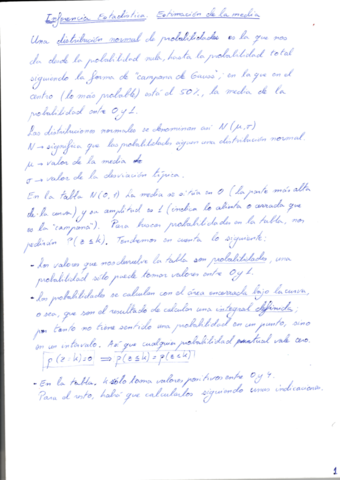 Inferencia Estadística. Estimación de la media
Una distribución normal de probabilidades es la que nos
da desde la probabilidad nula, hasta la probabilidad total
siguiendo la forma de "campana de Gauss", en la que en el
centro (lo más probable) está el 50%, la media de la
probabilidad entre 0 y 1.
Las distribuciones normales se denominan así N(μ,σ)
N → significa que las probabilidades siguen una distribución normal
μ → valor de la media
σ → valor de la desviación típica.
En la tabla N(0,1) la media se sitúa en 0 (la parte más alta
de la curva) y su amplitud es 1 (indica lo abierta o cerrada que
es la "campana"). Para buscar probabilidades en la tabla, nos
pedirán P(z≤k). Tendremos en cuenta lo siguiente:
- Los valores que nos devuelve la tabla son probabilidades, una
probabilidad sólo puede tomar valores entre 0 y 1.
- Las probabilidades se calculan con el área encerrada bajo la curva,
o sea, que son el resultado de calcular una integral definida;
por tanto no tiene sentido una probabilidad en un punto, sino
en un intervalo. Así que cualquier probabilidad puntual vale cero.
P(z=k)=0 ⟹ P(z≤k)=P(z<k)
- En la tabla, k sólo toma valores positivos entre 0 y 4.
Para el resto, habrá que calcularlos siguiendo unas indicaciones.
1